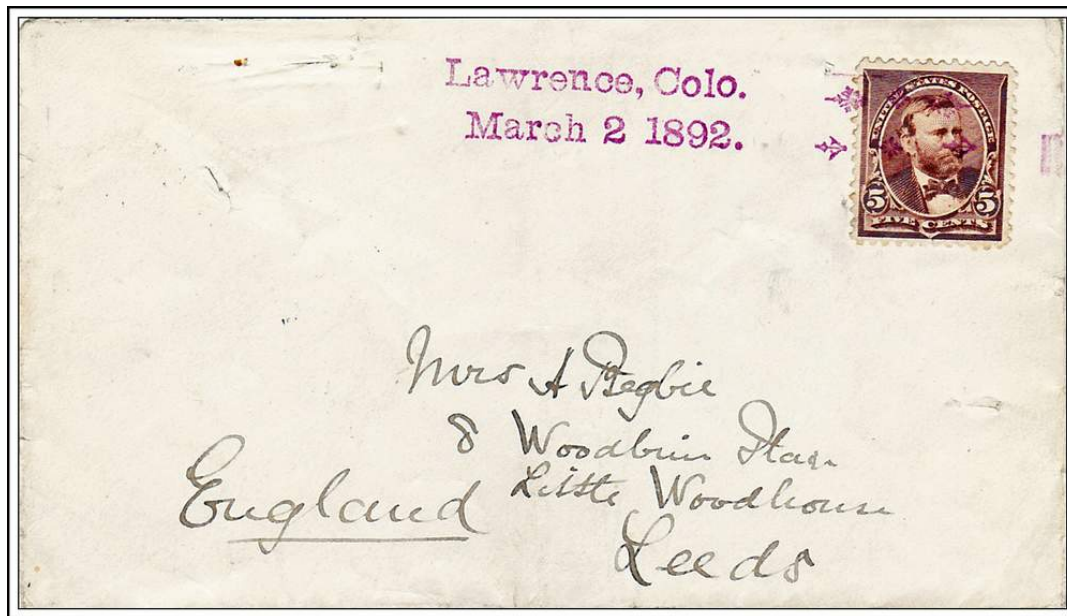 Lawrence, Colo.
March 2 1892.
UNITED STATES POSTAGE
5 5
FIVE CENTS
Mrs A Begbie
8 Woodbine Place
Little Woodhouse
England
Leeds